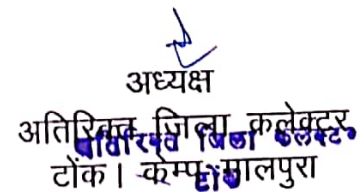 अध्यक्ष
अतिरिक्त जिला कलेक्टर
टोंक। केम्प मालपुरा
अतिरिक्त जिला कलेक्टर
टोंक